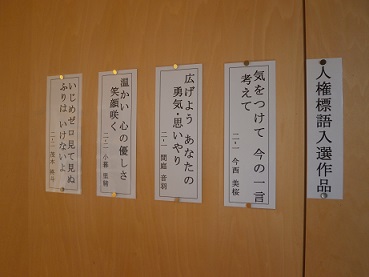 人権標語入選作品
気をつけて 今の一言
考えて
二・一 今西 美桜
広げよう あなたの
勇気・思いやり
二・一
温かい 心の優しさ
笑顔咲く
二・一 小暮
いじめゼロ 見て見ぬ
ふりは いけないよ
二・一